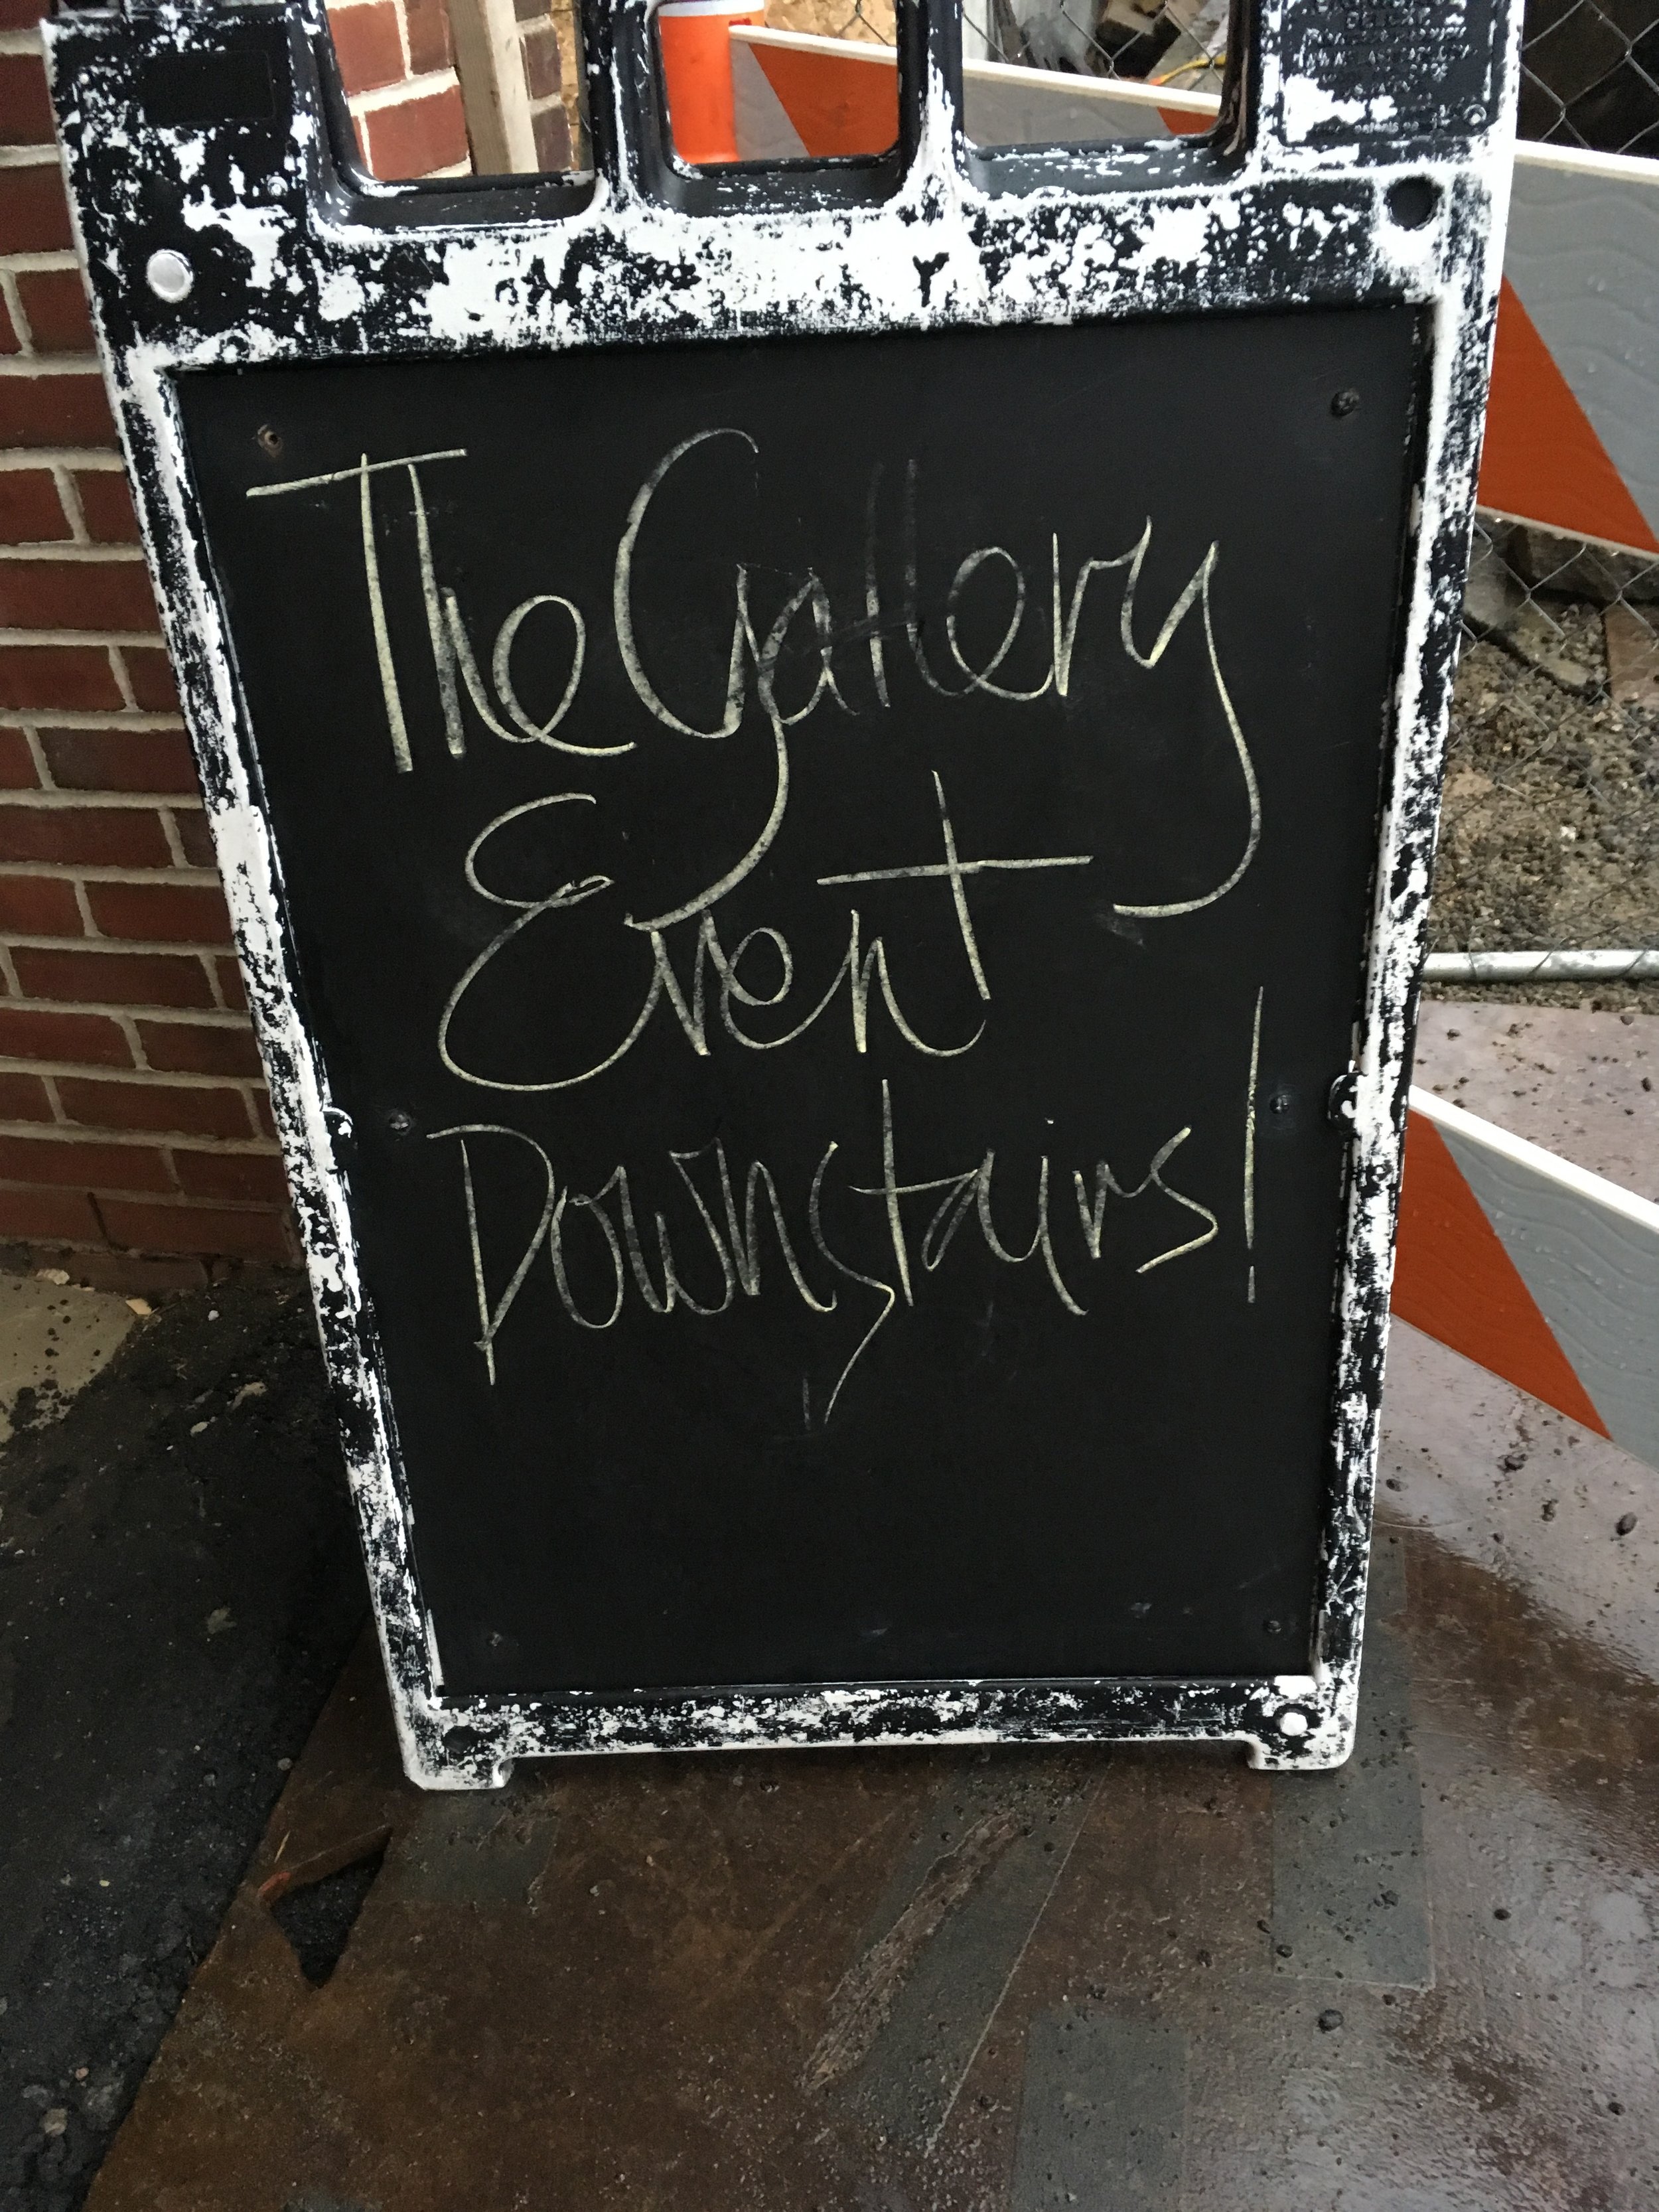 The Gallery
Event
Downstairs!